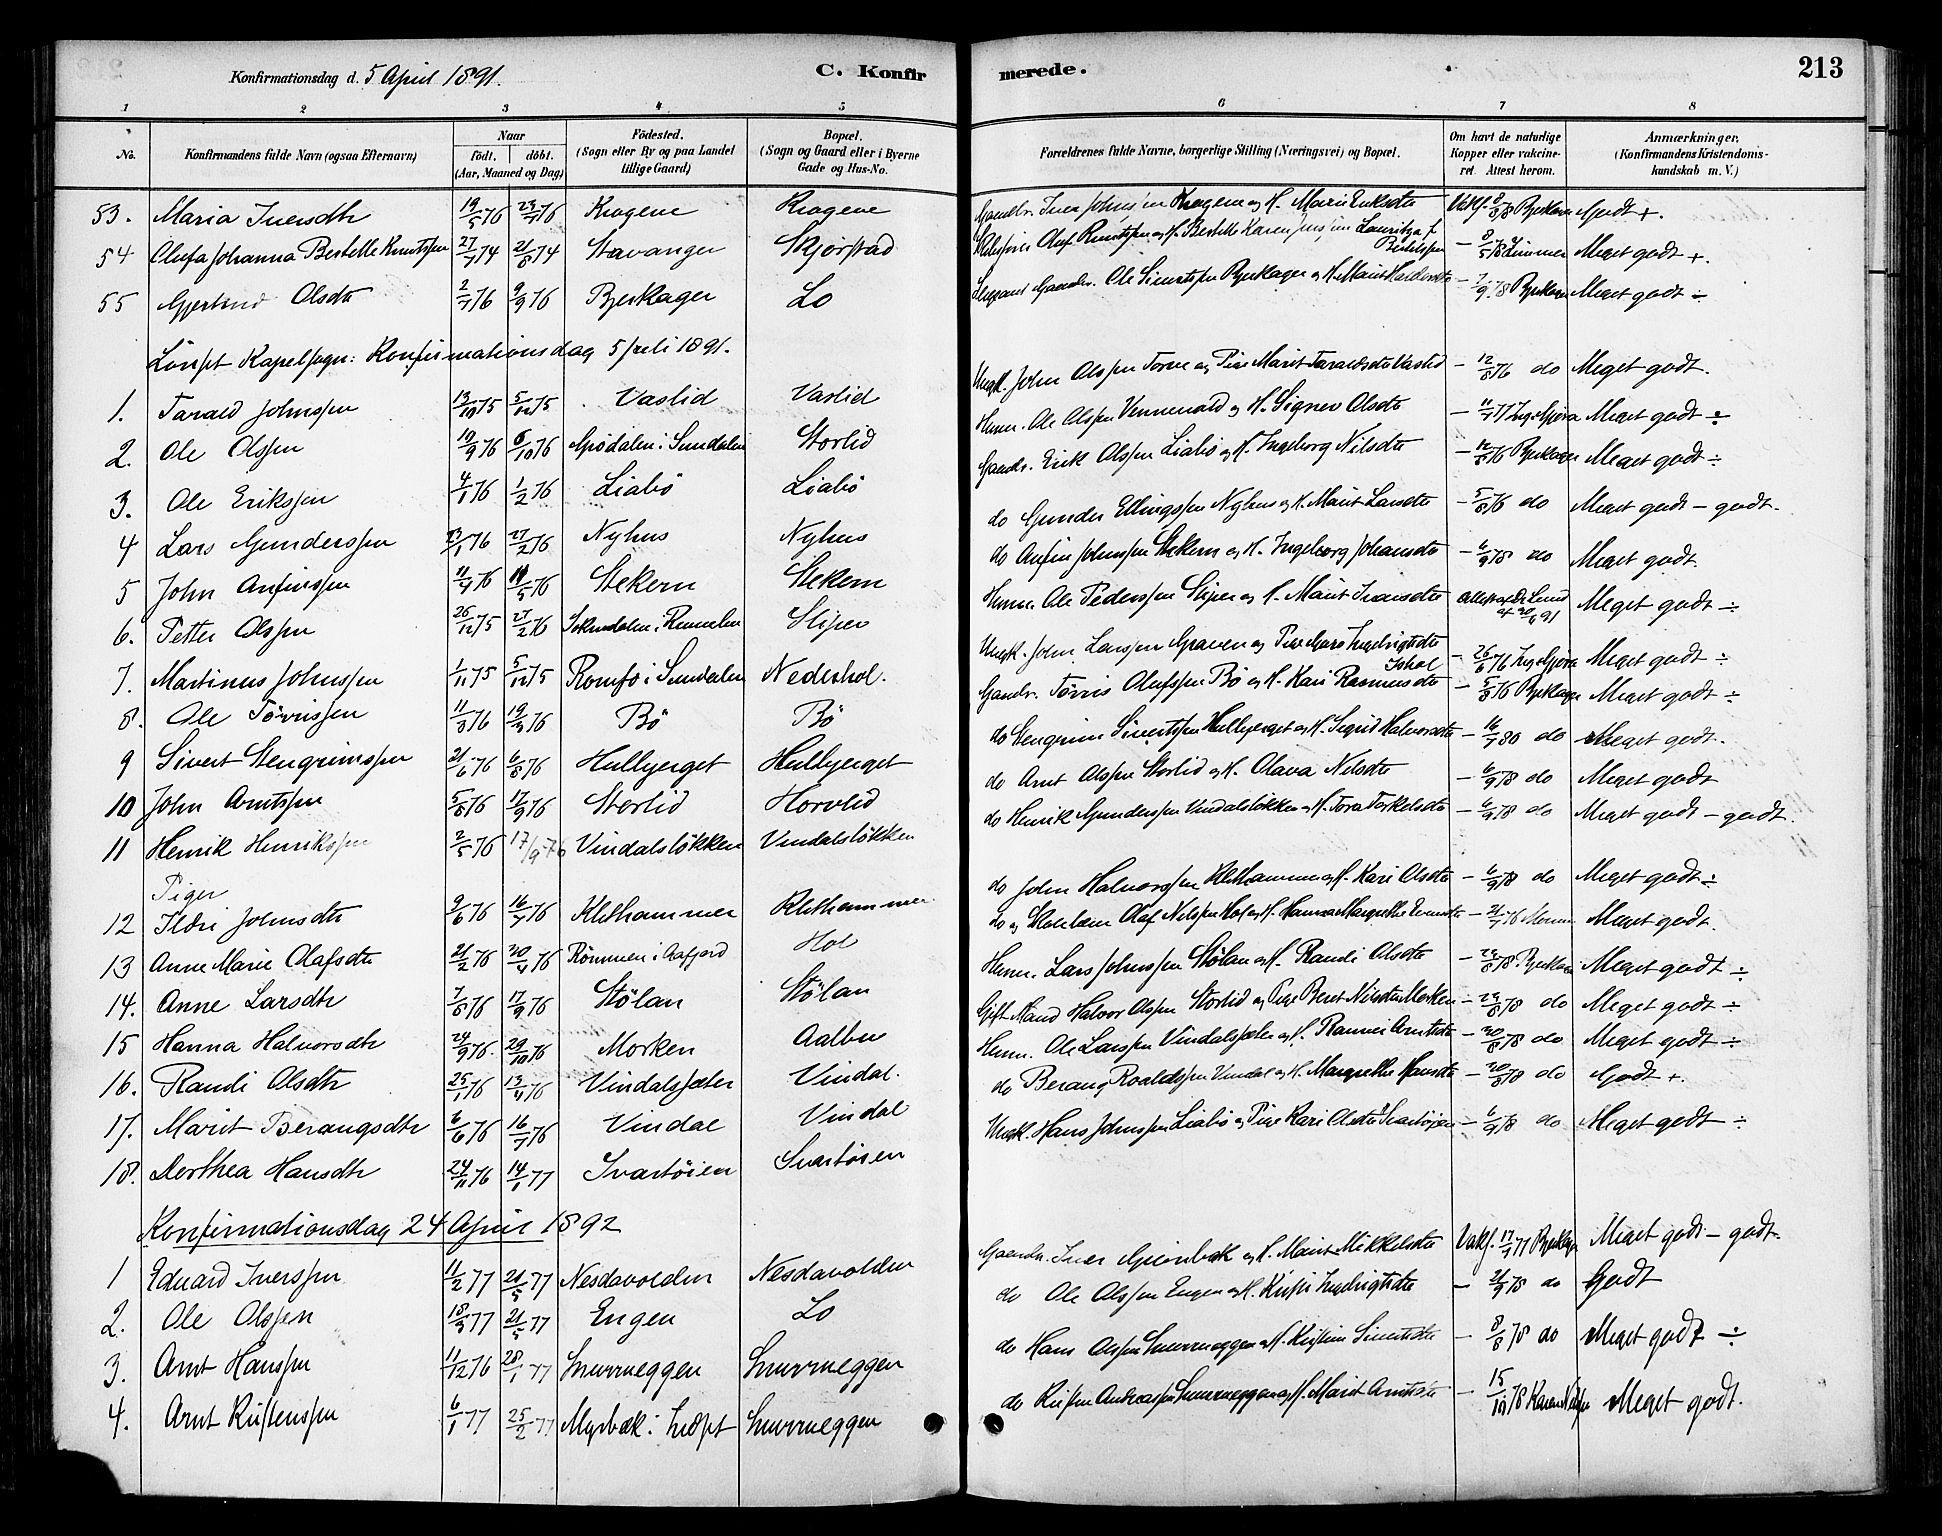 Konfirmationsdag d. 5 April 1891. C. Konfirmerede. 213
1 2 3 4 5 6 7 8
No. Konfirmandens fulde Navn (ogsaa Efternavn) Naar födt. döbt. (Aar, Maaned og Dag) Födested. (Sogn eller By og paa Landet tillige Gaard) Bopæl. (Sogn og Gaard eller i Byerne Gade og Hus-No. Forældrenes fulde Navne, borgerlige Stilling (Næringsvei) og Bopæl. Om havt de naturlige Kopper eller vakcineret. Attest herom. Anmærkninger. (Konfirmandens Kristendomskundskab m. V.)
53. Maria Iversdtr 19/5 76 23/7 76 Kragene Kragene Gaardbr. Iver Johnsen Kragene og H. Marit Eriksdtr Vakf. 8/8 78 Bjerkager Godt +.
54 Olufa Johanna Bertelle Knutssen 27/7 74 21/8 74 Stavanger Skjørstad Oluf Knutssen og H. Bertelle Karen Lauritza f. Bertelssen - 8/5 78 Meget godt +.
55 Gjertrud Olsdtr 2/7 76 9/9 76 Bjerkager Lo Gaardbr. Ole Sivertssen Bjerkager og H. Marit Haldorsdtr - 7/9 78 Bjerkager Meget godt ÷
Lönset Kapelsogn: Konfirmationsdag 5 Juli 1891.
1. Tarald Johnssen 13/10 75 5/12 75 Vaslid Vaslid Ungk. John Olssen Torve og Pige Marit Taraldsdtr Vaslid - 12/8 76 do Meget godt.
2. Ole Olssen 10/9 76 6/10 76 Gjødalen i Sundalen Storlid Huusm. Ole Olssen Vennevold og H. Signev Olsdtr - 11/7 77 Ing. Gjøra Meget godt ÷
3. Ole Erikssen 4/1 76 1/2 76 Liabö Liabö Gaardbr. Erik Olssen Liabö og H. Ingeborg Nilsdtr - 12/8 76 Bjerkager Meget godt ÷
4 Lars Gunderssen 23/1 76 27/2 76 Nyhus Nyhus do Gunder Ellingssen Nyhus og H. Marit Larsdtr - 5/8 76 do Meget godt - godt.
5 John Anfinssen 11/4 76 11/5 76 Stekern Stekern do Anfin Johnssen Stekern og H. Ingeborg Johansdtr - 6/9 78 do Meget godt.
6. Petter Olssen 26/12 75 27/2 76 Soknedalen i Rennebu Sliper Huusm. Ole Pederssen Slipen og H. Marit Ivarsdtr Attest Dr Lund af 20/6 91 Meget godt ÷
7. Martinus Johnssen 1/11 75 5/12 75 Romfo i Sundalen Nederhol. Ungk. John Larssen Graven og Pige Mari Ingebrigtsdtr Ishol - 26/6 76 Ing. Gjøra Meget godt ÷
8. Ole Törrissen 11/3 76 19/3 76 Bö Bö Gaardbr. Törris Olufssen Bö og H. Kari Rasmusdtr - 5/8 76 Bjerkager Meget godt ÷
9 Sivert Stengrimssen 21/6 76 6/8 76 Hulbjerget Hulbjerget do Stengrim Sivertssen Hulbjerget og H. Sigrid Halvorsdtr - 16/7 80 do Meget godt.
10 John Arntssen 5/8 76 17/9 76 Storlid Horvlid do Arnt Olssen Storlid og H. Olava Nilsdtr - 6/9 78 do Meget godt
11 Henrik Henrikssen 2/5 76 17/9-76 Vindalslökken Vindalslökken do Henrik Gunderssen Vindalslökken og H. Tora Torkelsdtr - 6/9 78 do Meget godt - godt.
Piger
12 Ildri Johnsdtr 9/6 76 16/7 76 Klethammer Klethammer do John Halvorssen Klethammer og H. Kari Olsdtr - 6/9 78 do Meget godt ÷
13 Anne Marie Olafsdtr 21/2 76 20/4 76 Römmen i Aafjord Hol do og Olaf Nilssen Hol og H. Hanna Margrethe - 21/7 76 Meget godt.
14. Anne Larsdtr 7/8 76 17/9 76 Stölan Stölan Huusm. Lars Johnssen Stölan og H. Randi Olsdtr - 29/8 78 Bjerkager Meget godt ÷
15 Hanna Halvorsdtr 24/9 76. 29/10 76 Morken Aalbu Gift Mand Halvor Olssen Storlid og Pige Beret Nilsdtr Morken - 29/8 78 do Meget godt ÷
16. Randi Olsdtr 25/1 76 13/4 76 Vindalssæter Vindal. Huusm. Ole Larssen Vindalssæter og H. Rannei Arntsdtr - 20/8 78 do Meget godt ÷
17. Marit Berangsdtr 6/6 76 16/7 76 Vindal Vindal do Berang Roaldssen Vindal og H. Margrethe Hansdtr - 20/8 78 do Godt +.
18. Dorthea Hansdtr 24/11 76 14/1 77 Svartöien Svartöien Ungk. Hans Johnssen Liabö og Pige Kari Olsdtr Svartöjen - 6/9 78 do Meget godt ÷
Konfirmationsdag 24 April 1892
1 Eduard Iverssen 11/2 77 21/5 77 Nesdavolden Nesdavolden Gaardbr. Iver og H. Marit Mikkelsdtr Vakf. 17/9 77 Bjerkager Meget godt - godt.
2. Ole Olssen 18/3 77 21/5 77 Engen Lo do Ole Olssen Engen og H. Kirsti Ingebrigtsdtr - 21/9 78 do Godt
3. Arnt Hanssen 11/12 76 28/1 77 Smørreggen Smørreggen do Hans Olssen Smørreggen og H. Kirstine Sivertsdtr - 8/8 78 do Meget godt ÷
4. Arnt Kristenssen 6/1 77 25/2 77 Myrbæk i Indset Smørreggen do Kristen Andreassen Smørreggen og H. Marit Arntsdtr - 15/10 78 Meget godt.